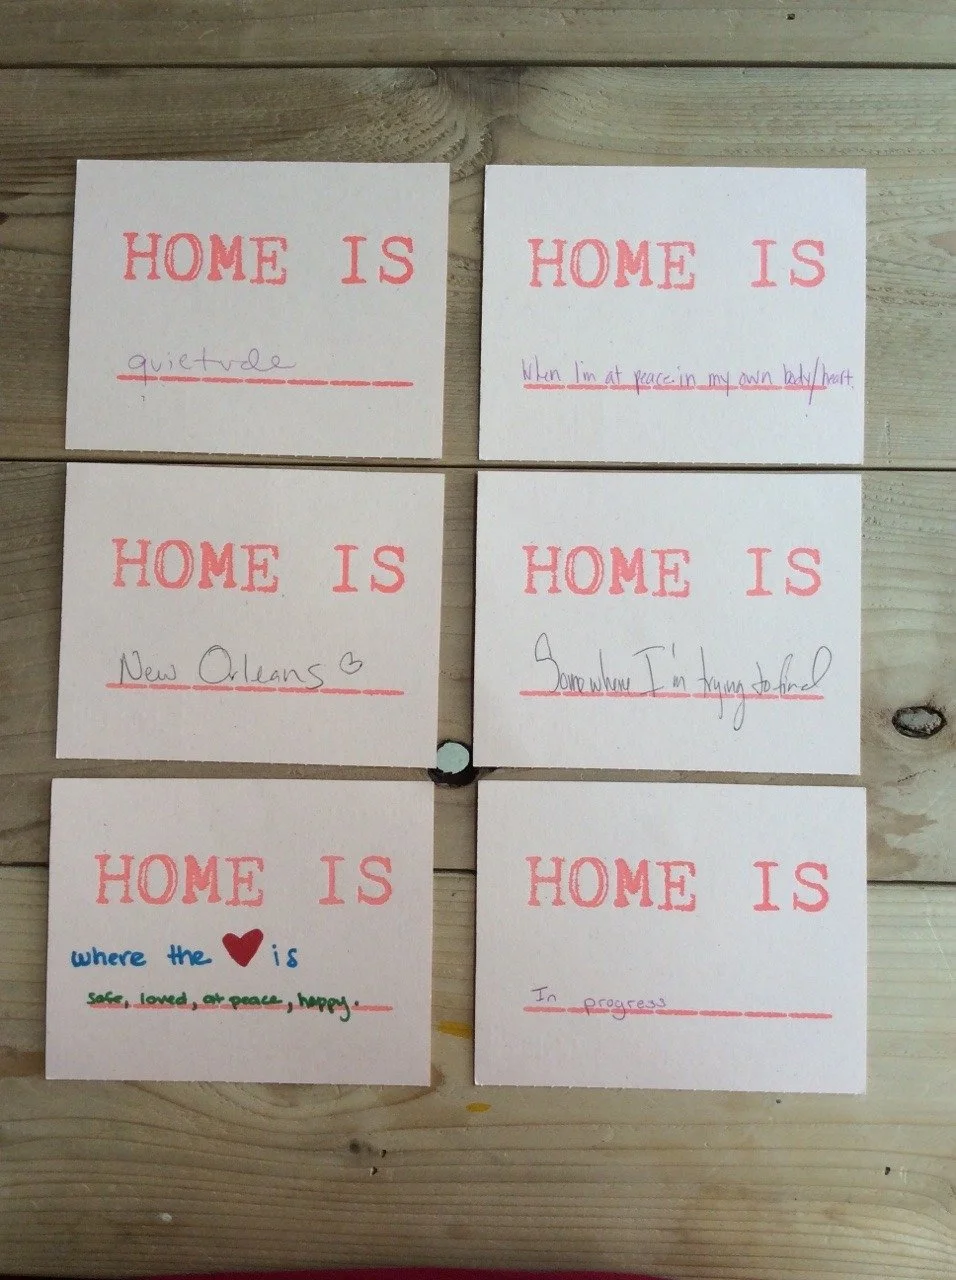 HOME IS
quietude
HOME IS
When I'm at peace in my own body/heart.
HOME IS
New Orleans
HOME IS
Somewhere I'm trying to find
HOME IS
where the ♥ is
safe, loved, at peace, happy.
HOME IS
In progress